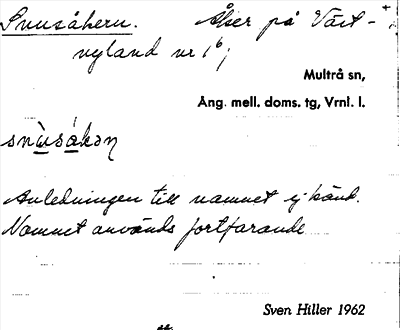 Snusåkern. Åker på Väst-
nyland nr 1⁶;
Multrå sn,
Ång. mell. doms. tg, Vrnl. l.
snùsåkəɳ
Anledningen till namnet ej känd.
Namnet används fortfarande
Sven Hiller 1962